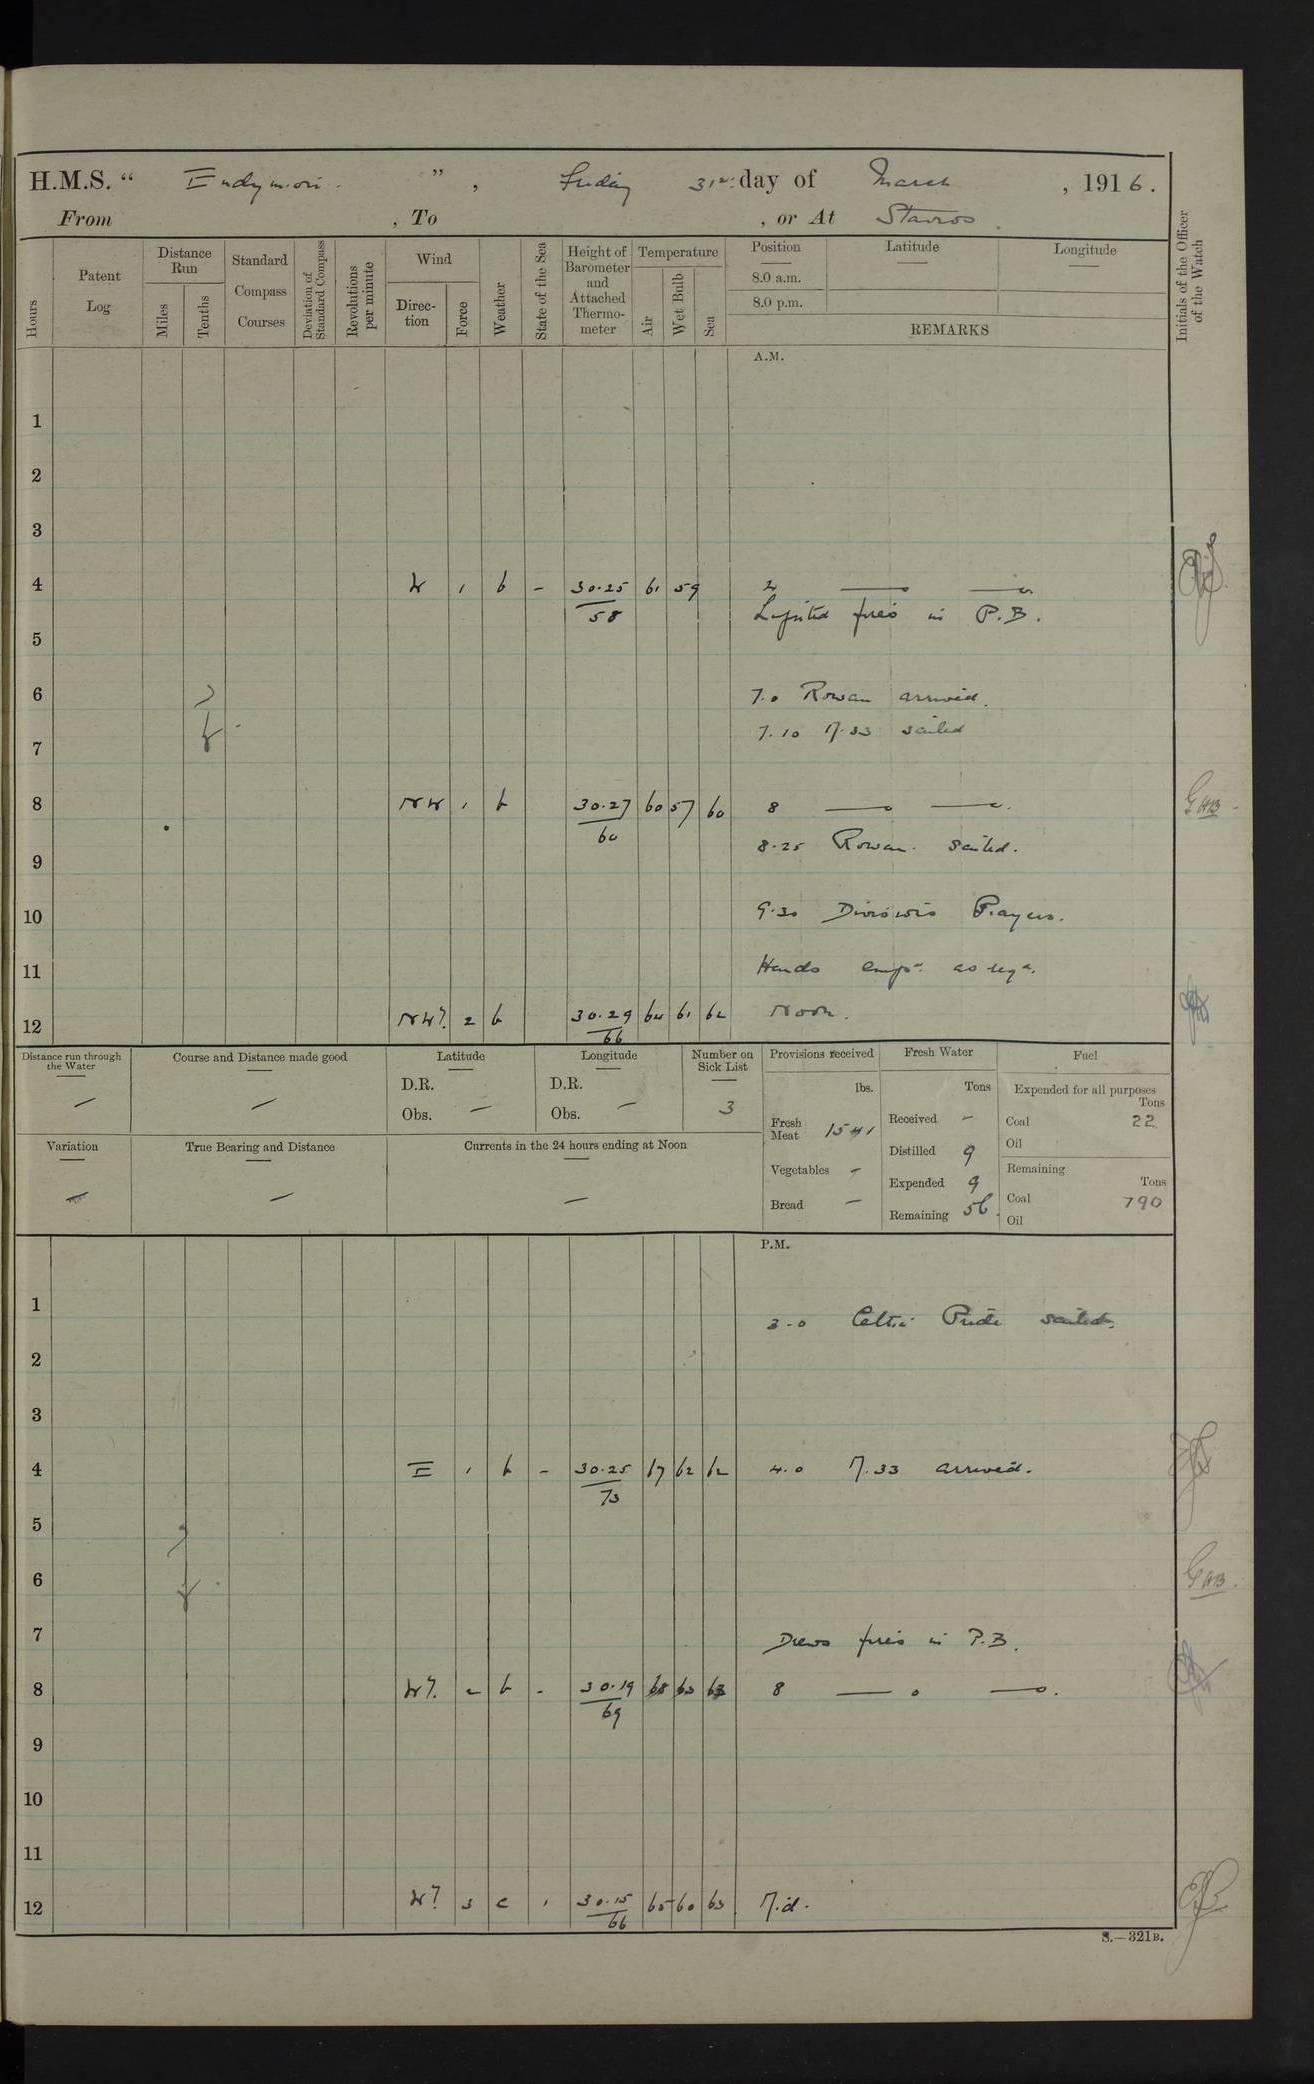 H.M.S. “ Endymion ” , Friday 31st day of March , 1916.
From , To , or At Stavros
Hours
Patent Log
Distance Run
Miles
Tenths
Standard Compass Courses
Deviation of Standard Compass
Revolutions per minute
Wind
Direc-tion
Force
Weather
State of the Sea
Height of Barometer and Attached Thermo-meter
Temperature
Air
Wet Bulb
Sea
Position
Latitude
Longitude
8.0 a.m.
8.0 p.m.
REMARKS
Initials of the Officer of the Watch
A.M.
1
2
3
4 W 1 b - 30.25 61 59 4
58
Lighted fires in P.B.
5
6 7.0 Rowan arrived.
7 7.10 M.33 sailed
8 NW 1 b 30.27 60 57 60 8 GHB
60
8.25 Rowan sailed.
9
10 9.30 Divisions Prayers.
11 Hands emp. as req.
12 NW 2 b 30.29 64 61 62 Noon.
66
Distance run through the Water
Course and Distance made good
Latitude
D.R.
Obs. –
Longitude
D.R.
Obs. –
Number on Sick List
3
Provisions received
lbs.
Fresh Meat 1541
Vegetables –
Bread –
Fresh Water
Tons
Received –
Distilled 9
Expended 9
Remaining 56.
Fuel
Expended for all purposes
Tons
Coal 22
Oil
Remaining
Tons
Coal 790
Oil
Variation
True Bearing and Distance
Currents in the 24 hours ending at Noon
P.M.
1
3-0 Celtic Pride sailed.
2
3
4 E 1 b - 30.25 67 62 62 4.0 M.33 arrived.
73
5
6 GHB.
7 Drew fires in P.B.
8 2 b - 30.19 68 63 63 8
69
9
10
11
12 3 c 1 30.15 65 60 63 Mid.
66
S.—321B.